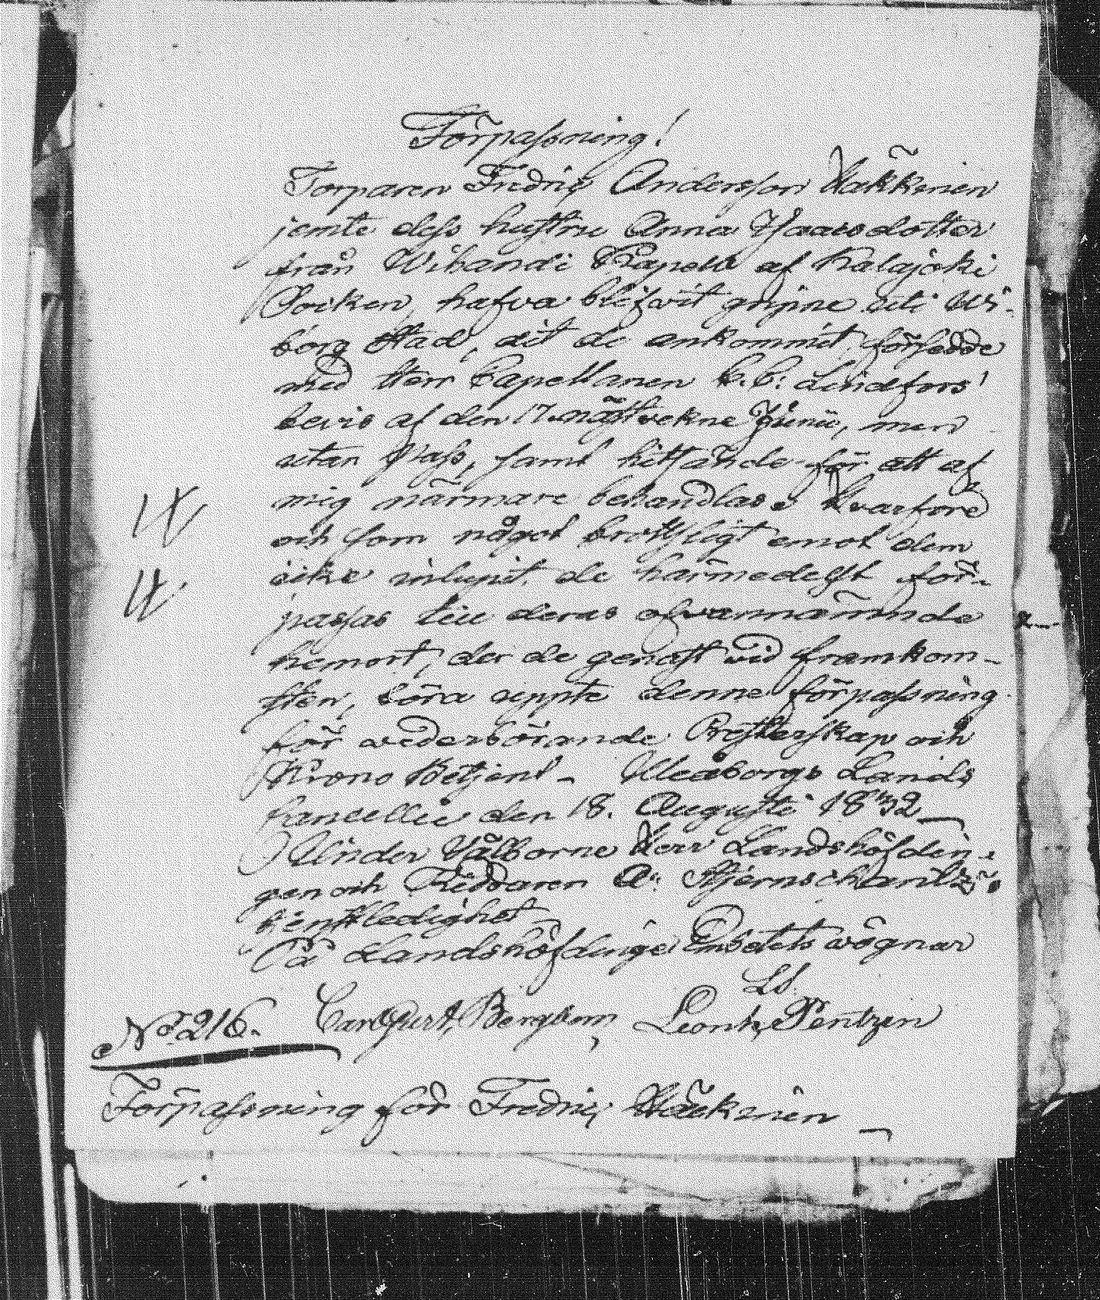 Förpassning!
Torparen Fredric Andersson Häkkinen
jemte dess hustru Anna Isaacsdotter
från Wihandi Kapell af Kalajoki
Socken, hafva blifvit gripne uti Wi-
borg Stad, dit de ankommit försedde
med Herr Capellanen C. C. Lindfors'
bevis af den 17 nästvekne Junii, men
utan Pass, samt hitsände för att af
mig närmare behandlas; Hvarföre
och som något brottsligt emot dem
icke inlupit, de härmedelst för-
passas till deras ofvannämnde
hemort, der de genast vid framkom-
sten, böra uppte denne förpassning
för vederbörande Presterskap och
Krono Betjent – Uleåborgs Lands
Cancellie den 18. Augusti 1832
Under Välborne Herr Landshöfdin-
gen och Riddaren A: Stjernschantz's
tjenstledighet
På Landshöfdinge Embetets vägnar
LS.
Carl Gust. Bergbom, Leont. Pentzen
No. 216.
Förpassning för Fredric Häckinen